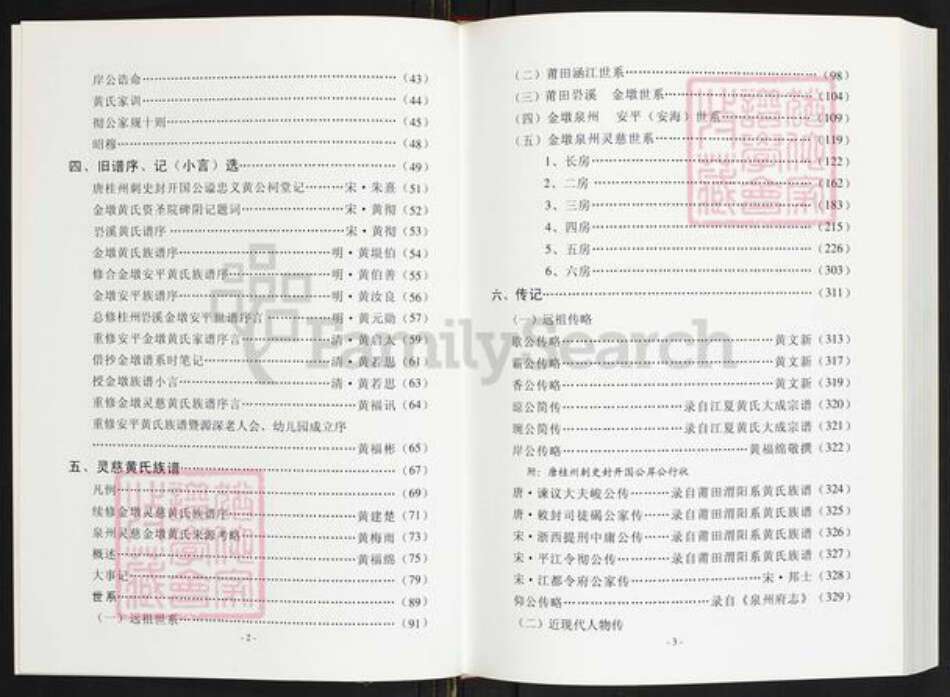 岸公诰命………………………………（43）
黄氏家训………………………………（44）
彻公家规十则…………………………（45）
昭穆……………………………………（48）
四、旧谱序、记（小言）选……………………（49）
唐桂州刺史封开国公谥忠义黄公祠堂记………宋·朱熹（51）
金墩黄氏资圣院碑阴记题词……………宋·黄彻（52）
岩溪黄氏谱序……………………………宋·黄彻（53）
金墩黄氏族谱序…………………………明·黄堣伯（54）
修合金墩安平黄氏族谱序………………明·黄伯善（55）
金墩安平族谱序…………………………明·黄汝良（56）
总修桂州岩溪金墩安平世谱序言………明·黄元勋（57）
重修安平金墩黄氏家谱序言……………清·黄启太（59）
借抄金墩谱系时笔记……………………清·黄若思（61）
授金墩族谱小言…………………………清·黄若思（63）
重修金墩灵慈黄氏族谱序言……………黄福讯（64）
重修安平黄氏族谱暨源深老人会、幼儿园成立序
……………………………………………黄福彬（65）
五、灵慈黄氏族谱……………………………（67）
凡例………………………………………（69）
续修金墩灵慈黄氏族谱序………………黄建楚（71）
泉州灵慈金墩黄氏来源考略……………黄梅雨（73）
概述………………………………………黄福绵（75）
大事记……………………………………（79）
世系………………………………………（89）
（一）远祖世系…………………………（91）
-2-
（二）莆田涵江世系……………………（98）
（三）莆田岩溪 金墩世系……………（104）
（四）金墩泉州 安平（安海）世系……（109）
（五）金墩泉州灵慈世系………………（119）
1、长房…………………………………（122）
2、二房…………………………………（162）
3、三房…………………………………（183）
4、四房…………………………………（215）
5、五房…………………………………（226）
6、六房…………………………………（303）
六、传记………………………………………（311）
（一）远祖传略
歇公传略…………………………………黄文新（313）
霸公传略…………………………………黄文新（317）
香公传略…………………………………黄文新（319）
琼公简传……………录自江夏黄氏大成宗谱（320）
琬公简传……………录自江夏黄氏大成宗谱（321）
岸公传略……………………………黄福绵敬撰（322）
附：唐桂州刺史封开国公岸公行状
唐·谏议大夫峻公传………录自莆田渭阳系黄氏族谱（324）
唐·敕封司徒碣公家传……录自莆田渭阳系黄氏族谱（325）
宋·浙西提刑中庸公传……录自莆田渭阳系黄氏族谱（326）
宋·平江令彻公传…………录自莆田渭阳系黄氏族谱（327）
宋·江都令府公家传………………………宋·邦士（328）
仰公传略………………………录自《泉州府志》（329）
（二）近现代人物传
-3-
FamilySearch